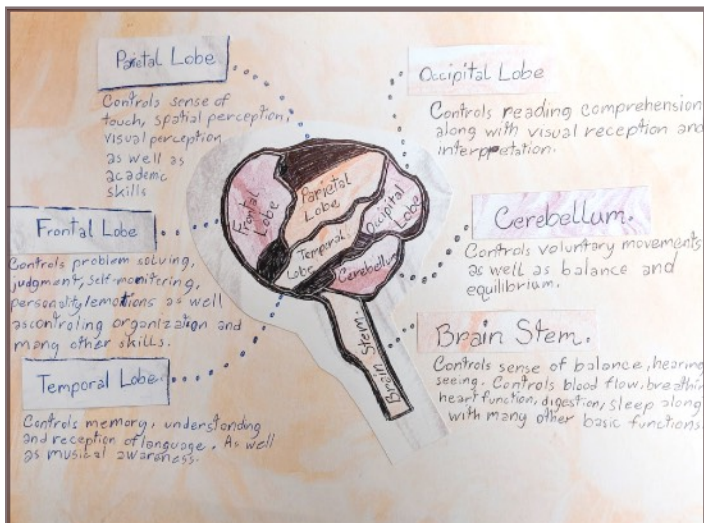 Parietal Lobe
Controls sense of
touch, spatial perception,
visual perception
as well as
academic
skills
Frontal Lobe
Controls problem solving,
judgment, self-monitering,
personality/emotions as well
ascontroling organization and
many other skills.
Temporal Lobe.
Controls memory, understanding
and reception of language. As well
as musical awareness.
Frontal
Lobe
Parietal
Lobe
Temporal
Lobe
Occipital
Lobe
Cerebellum
Brain Stem.
Occipital Lobe
Controls reading comprehension
along with visual reception and
interpretation.
Cerebellum.
Controls voluntary movements
as well as balance and
equilibrium.
Brain Stem.
Controls sense of balance, hearing
seeing. Controls blood flow, breathin
heart function, digestion, sleep along
with many other basic functions.